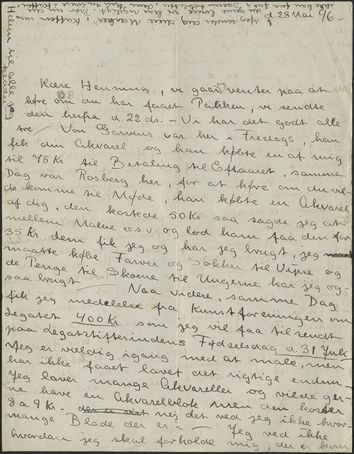 d. 28 Mai 46-
Kære Henning, vi gaar venter paa at
høre om du har faaet Pakken, vi sendte
den herfra d. 22 ds. - Vi har det godt alle
Von Garvens var her i Fredags, han
fik din Akvarel og han købte en af mig
til 75 Kr til Betaling til Efteraaret, samme
Dag var Rosberg her, for at høre om du vil-
de komme til Møde, han købte en Akvarel
af dig, den kostede 50 Kr saa sagde jeg at
mellem Malere o.s.v. og lod ham faa den for
35 Kr dem fik jeg og har jeg brugt, jeg
maatte købe Farver og Sokker til Vibje og
de Penge til Skoene til Ungerne har jeg og-
saa brugt Naa videre, samme Dag
fik jeg meddelelse fra Kunstforeningen om
Legatet 400 Kr som jeg vil faa tilsendt
paa Legatstifterindens Fødselsdag d. 31 Juli
Jeg er vældig igang med at male, men
har ikke faaet lavet det rigtige endnu-
Jeg laver mange Akvareller og vilde ger-
ne have en Akvarelblok men den koster
8 a 9 Kr - nej det ved jeg ikke hvor-
mange Blade der er - Jeg ved ikke
hvordan jeg skal forholde mig, der er kom